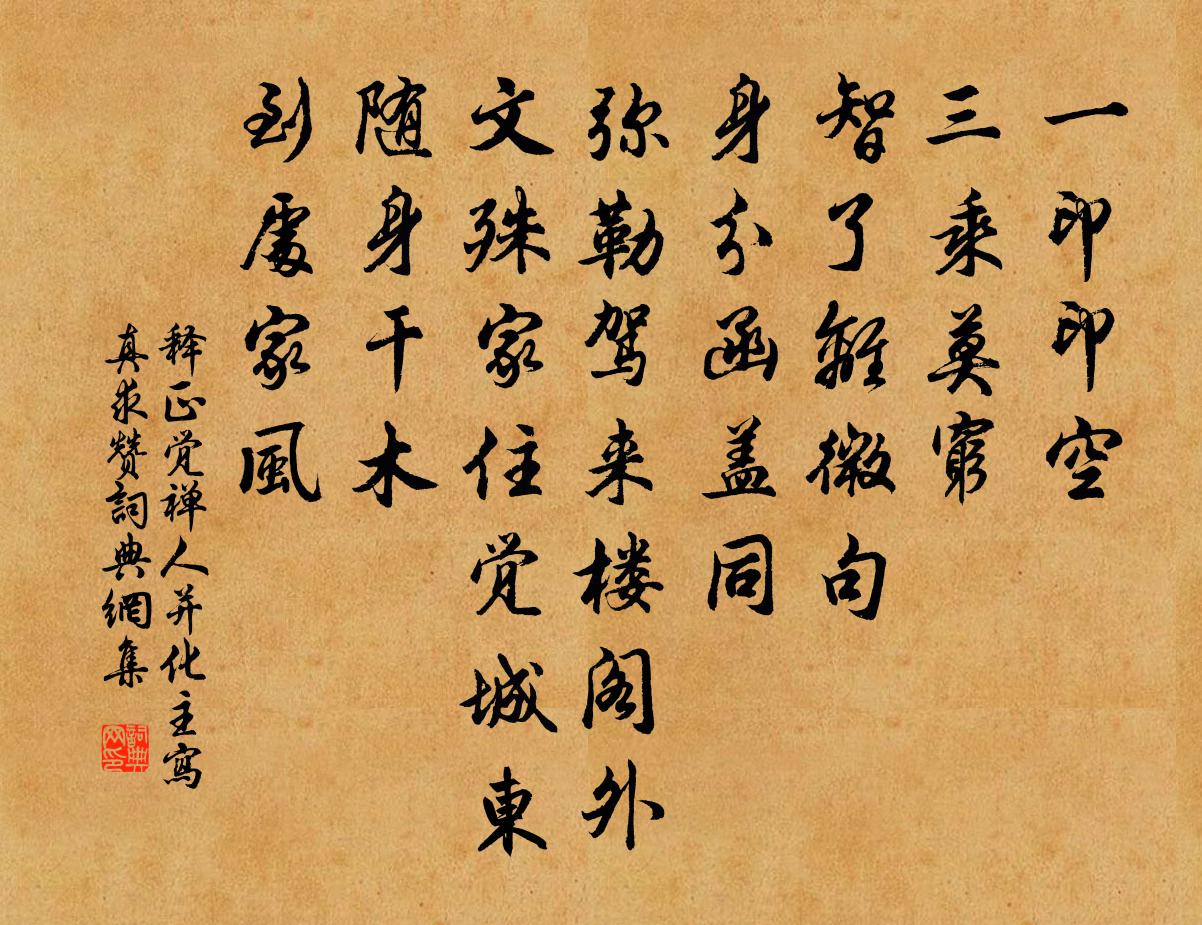 一印印空
三乘莫窮
智了離微句
身分函盖同
弥勒駕来楼阁外
文殊家住觉城東
随身干木
到處家風
释正觉禅人并化主寫
真求赞詞典網集
詞典
网印